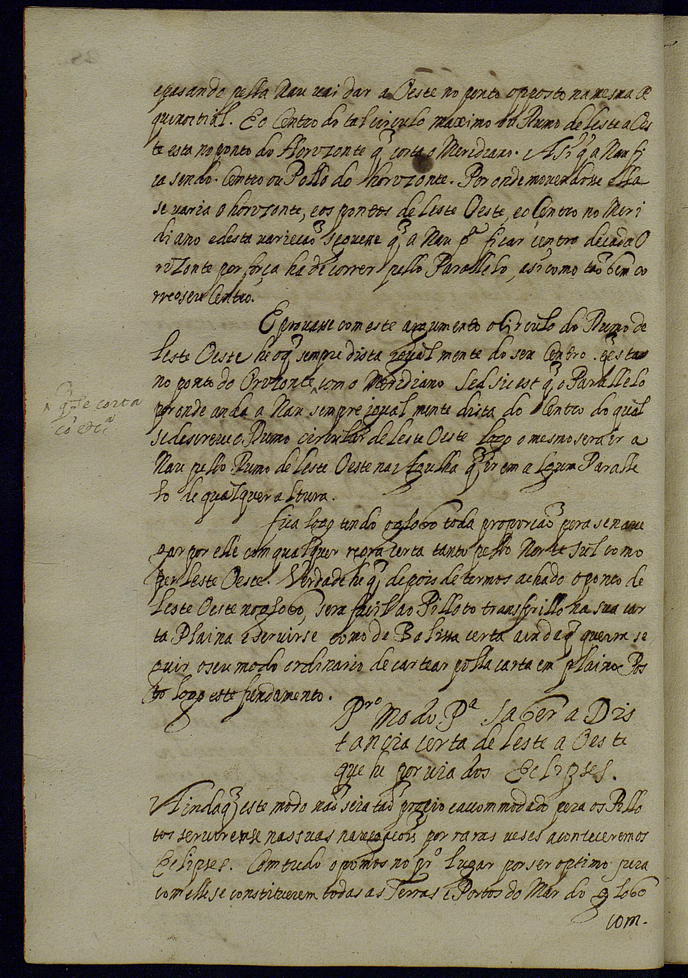 epasando pella Nau uai dar a Oeste no ponto opposto na mesma E
quinoctial. E o Centro do tal circulo maximo ou Rumo de leste a Oes
te esta no ponto do Horizonte q̃ corta o Meridiano. Asi q̃ a Nau fi
ca sendo Centro ou Pollo do horizonte. Por onde mouendose ella
se uaria o horizonte, e os pontos de Leste Oeste, e o Centro no Meri
diano e desta variecaõ se segue q̃ a Nau pª ficar centro de cada O
rizonte por força ha de correr pello Parallelo, asi como taõ bem co
rre o seu Centro.
E prouase com este argumento o Circulo do Rumo de
Leste Oeste he o q̃ sempre dista igual mente do seu Centro q̃ esta
no ponto do Orizonte com o Meridiano Sed sic est q̃ o Parallelo
por onde anda a Nau sempre igual mente dista do Centro do qual
se descreue o Rumo circular de Leste Oeste logo o mesmo sera ir a
Nau pello Rumo de Leste Oeste na Agulha q̃ ir em algum Paralle
lo de qualquer altura.
q̃ se corta
cõ etcª
Fica logo tendo o globo toda proporçaõ pera se naue
gar por elle com qualquer regra certa tanto pello Norte Sul como
per Leste Oeste. Verdade he q̃ depois de termos achado o ponto de
Leste Oeste no globo, sera facil ao Pilloto transferillo na sua car
ta Plaina e seruirse como de Balisa certa ainda q̃ queira se
guir o seu modo ordinario de cartear polla carta em plaino. Pos
to logo este fundamento.
Prº Modo Pª Saber a Dis
tancia certa de leste a Oeste
que he por via dos Eclipses.
Ainda q̃ este modo naõ seia taõ proprio e accommodado pera os Pillo
tos seruirense nas suas nauegacois por raras ueses acontecerem os
Eclipses. Com tudo o pomos no prº lugar por ser optimo pera
com elle se constituerem todas as Terras e Portos do Mar do globo
com-